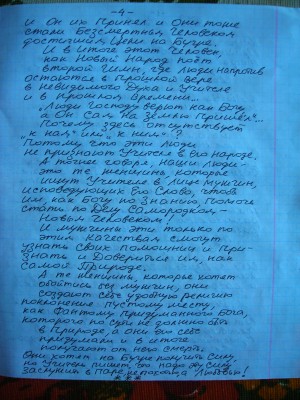 -4-
и Он их Принял и Они тоже
стали Безсмертная Человеком
достигшим Цели на Бугре.
И в итоге этот Человек,
как Новый Народ поёт
второй Гимн, где люди напротив
остаются в Прошлой Вере
в Невидимого Духа и Учителя
и в Прошлом Времени...
"Люди Господу верют как Богу
а Он Сам на Землю Пришёл"...
Почему здесь отсутствует
"к нам" или "к ним"?
Потому что эти люди
не признают Учителя в Его Народе.
А точнее говоря, наши люди-
это те женщины, которые
ищут Учителя в лице мужчин,
исповедующих Его Слова, чтоб
им, как Богу по Знанию, Помочь
стать по Делу Самородком -
Новым Человеком!
И мужчины эти только по
этим Качествам смогут
узнать своих помощниц и При-
знать и Довериться им, как
Самой Природе.
А те женщины, которые хотят
обойтись без мужчин, они
создают себе удобную религию
поклонение пустому месту,
как фантому придуманного Бога,
которого по сути не должно быть
в Природе, а они его себе
придумали и в итоге
получают от него смерть.
Они хотят на Бугре получить силу,
но Учитель пишет, что надо эту силу
заслужить в Паре, не потеряв Любовью!
***